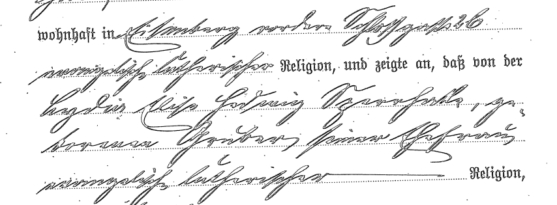 wohnhaft in Eisenberg vordere Schloßgasse 26
evangelisch lutherischer Religion, und zeigte an, daß von der
Lydia Elise Hedwig Sperhake, ge-
borenen Gruber, seiner Ehefrau,
evangelisch lutherischer Religion,